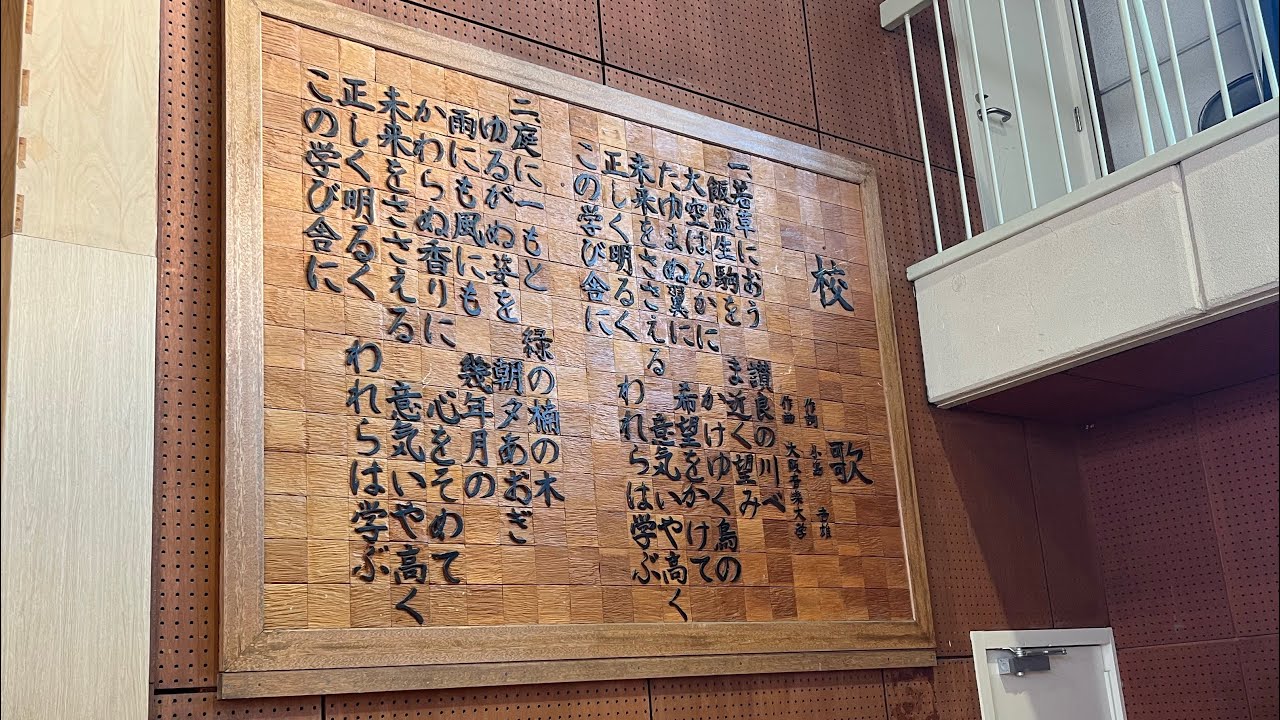 校歌
作詞 小
作曲 大阪音楽大学
一、若草におう 讃良の川べ
飯盛生駒を ま近く望み
大空はるかに かけゆく鳥の
たゆまぬ翼に 希望をかけて
未来をささえる 意気いや高く
正しく明るく われらは学ぶ
この学び舎に
二、庭に一もと 緑の楠の木
ゆるがぬ姿を 朝夕あおぎ
雨にも風にも 幾年月の
かわらぬ香りに 心をそめて
未来をささえる 意気いや高く
正しく明るく われらは学ぶ
この学び舎に